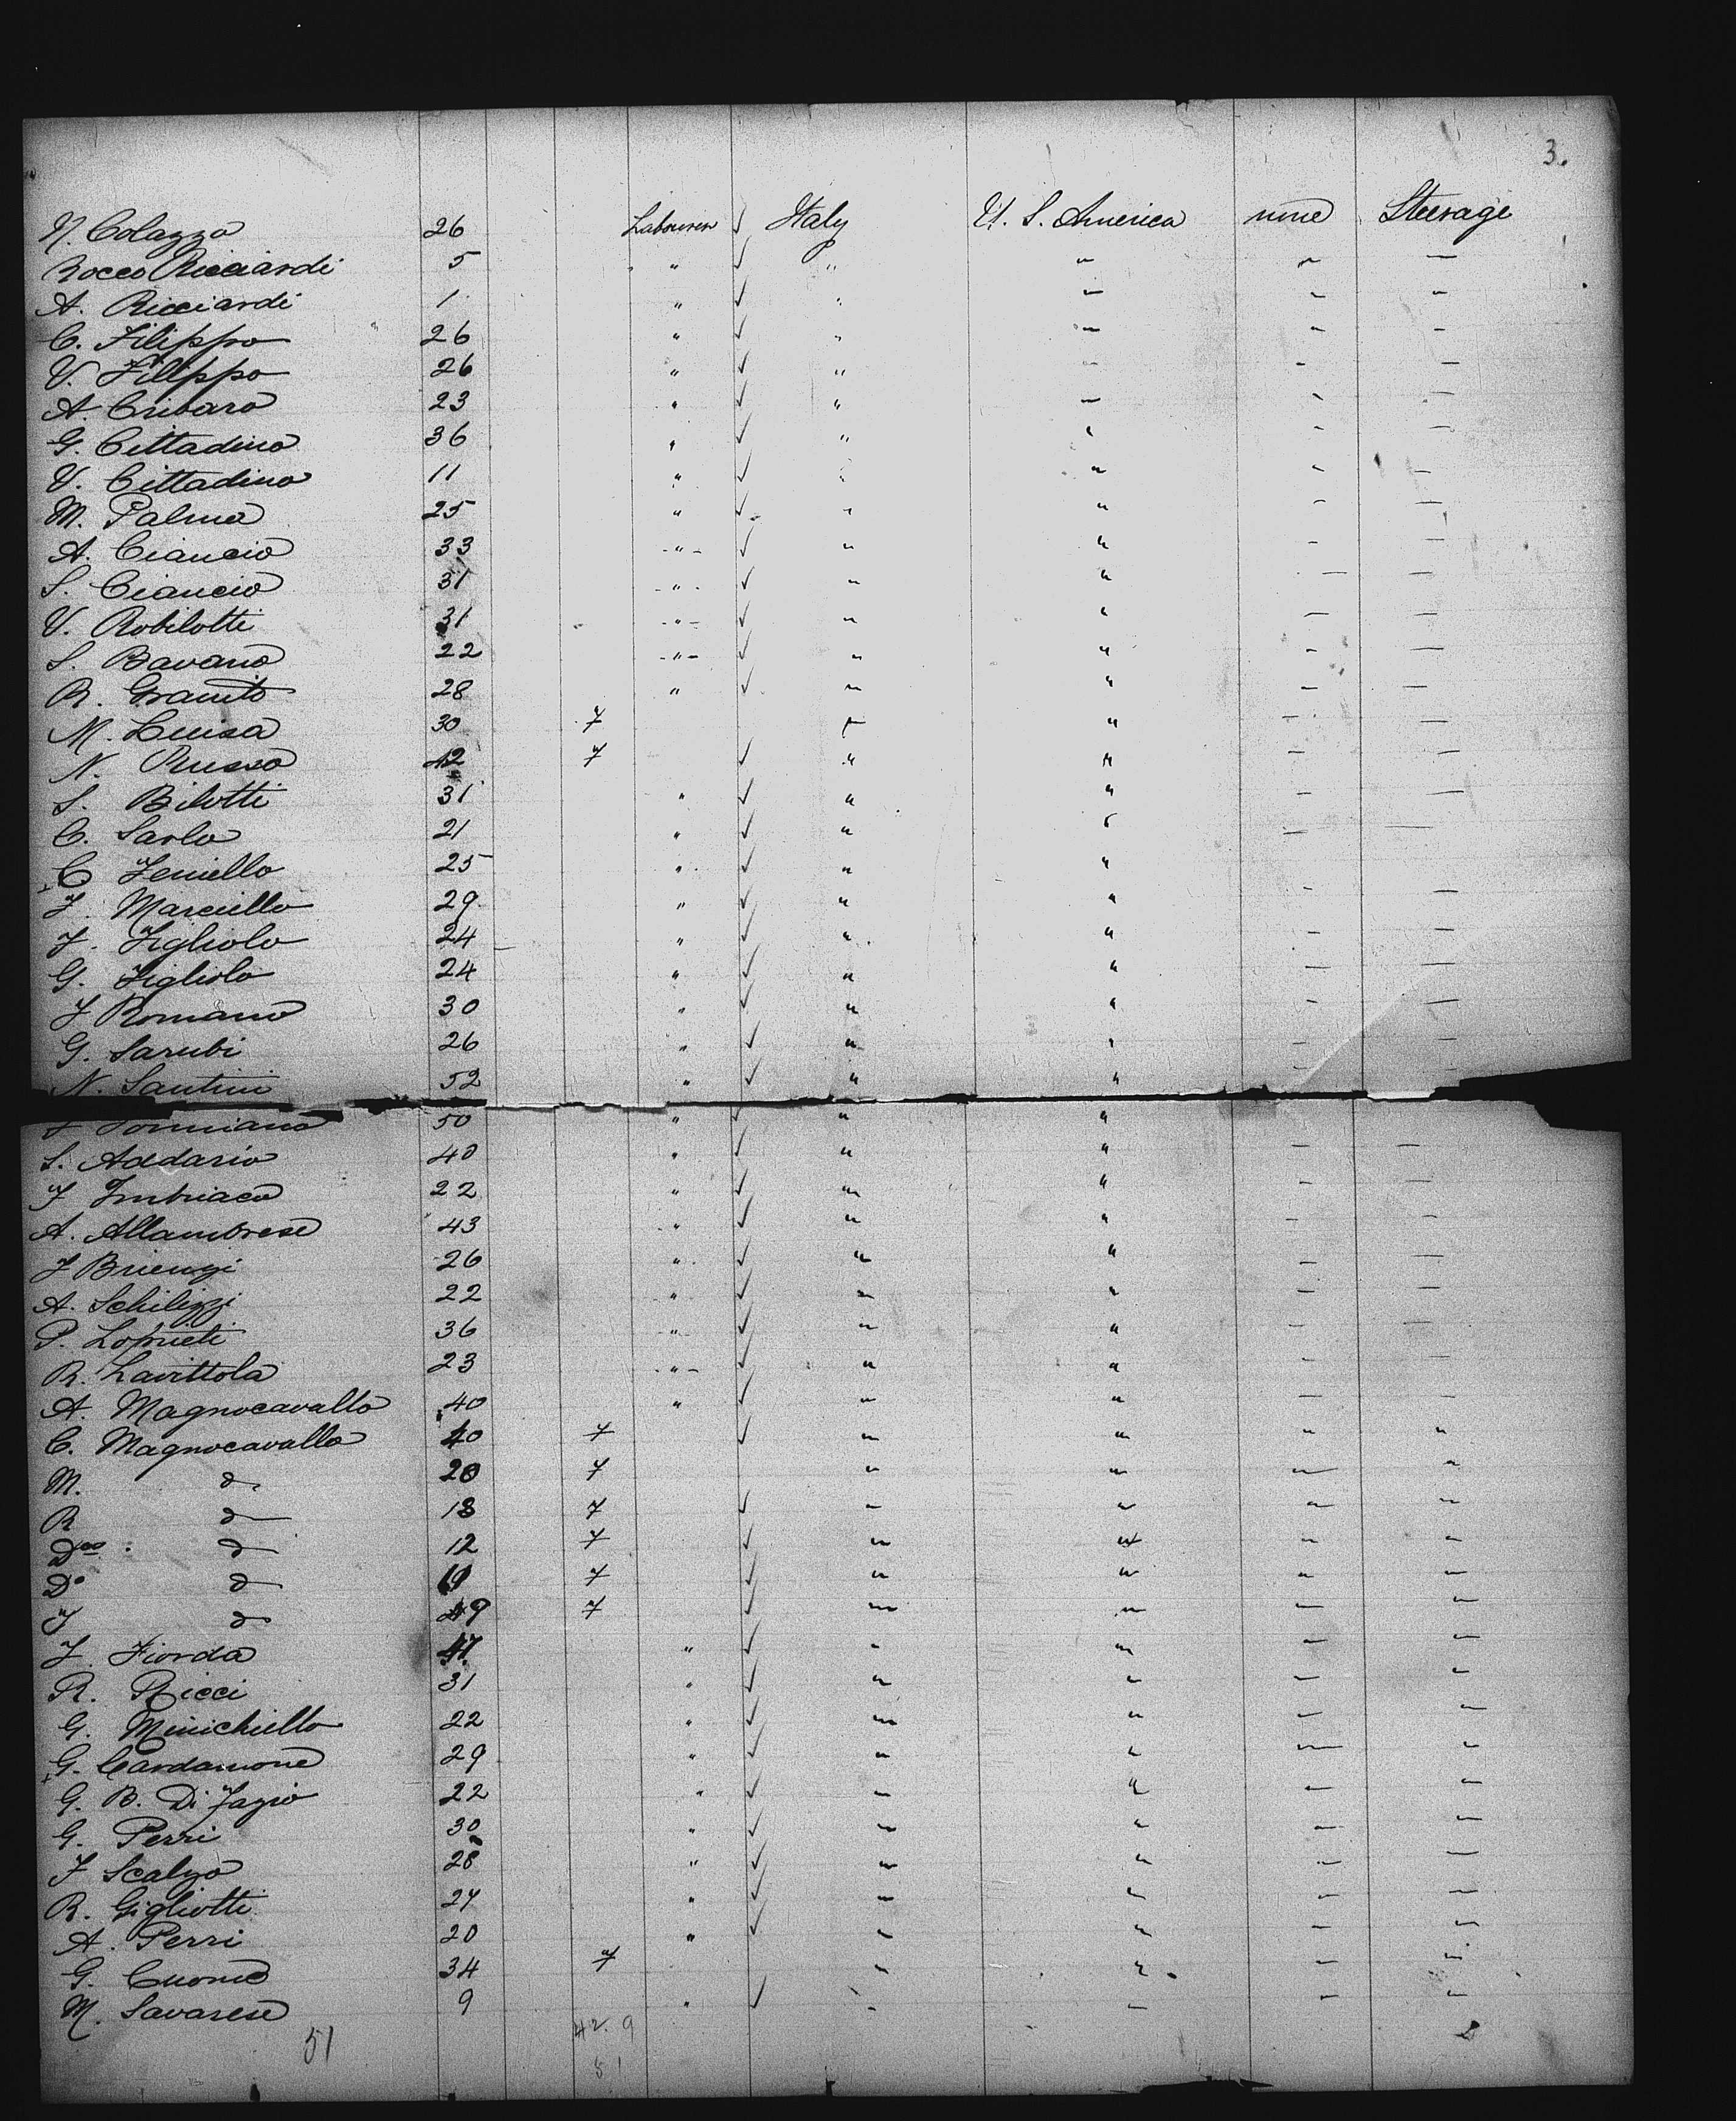 3.
N. Colazzo 26 Labourers ✓ Italy U. S. America none Steerage
Rocco Ricciardi 5 " ✓ " " " —
A. Ricciardi 1 " ✓ " — — —
C. Filippo 26 " ✓ " — — —
V. Filippo 26 " ✓ " — — —
A. Cribaro 23 " ✓ " — — —
G. Cittadino 36 " ✓ " " — —
V. Cittadino 11 " ✓ " " — —
M. Palma 25 " ✓ " " — —
A. Ciancio 33 " ✓ " " — —
S. Ciancio 31 " ✓ " " — —
V. Robilotti 31 " ✓ " " — —
S. Bavano 22 " ✓ " " — —
R. Granito 28 " ✓ " " — —
M. Luisa 30 7 " " — —
N. Russo 42 7 ✓ " " — —
S. Bilotti 31 " ✓ " " — —
C. Sarlo 21 " ✓ " " — —
C Feniello 25 " ✓ " "
F. Marciello 29 " ✓ " " — —
F. Figliolo 24 " ✓ " " — —
G. Figliolo 24 " ✓ " " — —
F Romano 30 " ✓ " " — —
G. Sarubi 26 " ✓ " " — —
N. Santini 52 " ✓ " " — —
50 " ✓ " "
S. Addario 40 " ✓ " " — —
F Imbriaco 22 " ✓ " " — —
A. Allambrese 43 " ✓ " " — —
F Brienzi 26 " ✓ " " — —
A. Schilizzi 22 " ✓ " " — —
P. Loprieti 36 " ✓ " " — —
R. Lavittola 23 " ✓ " " — —
A. Magnocavallo 40 " ✓ " " — —
C. Magnocavallo 40 7 ✓ " " " "
M. do 20 7 " " — "
R do 18 7 ✓ " " " "
Dco : do 12 7 ✓ " " " "
Do do 7 ✓ " " " "
F do 49 7 ✓ " " — "
F. Fiorda " ✓ " " — "
R. Ricci 31 " ✓ " " — "
G. Minichiello 22 " ✓ " " — —
G. Cardamone 29 " ✓ " " — "
G. B. Di Fazio 22 " ✓ " " — —
G. Perri 30 " ✓ " " — —
F Scalzo 28 " ✓ " " — —
R. Gigliotti 24 " ✓ " " — —
A. Perri 20 " ✓ " " — —
G. Cuomo 34 7 " " — "
M. Savarese 9 " ✓ " — — —
51 42. 9
51